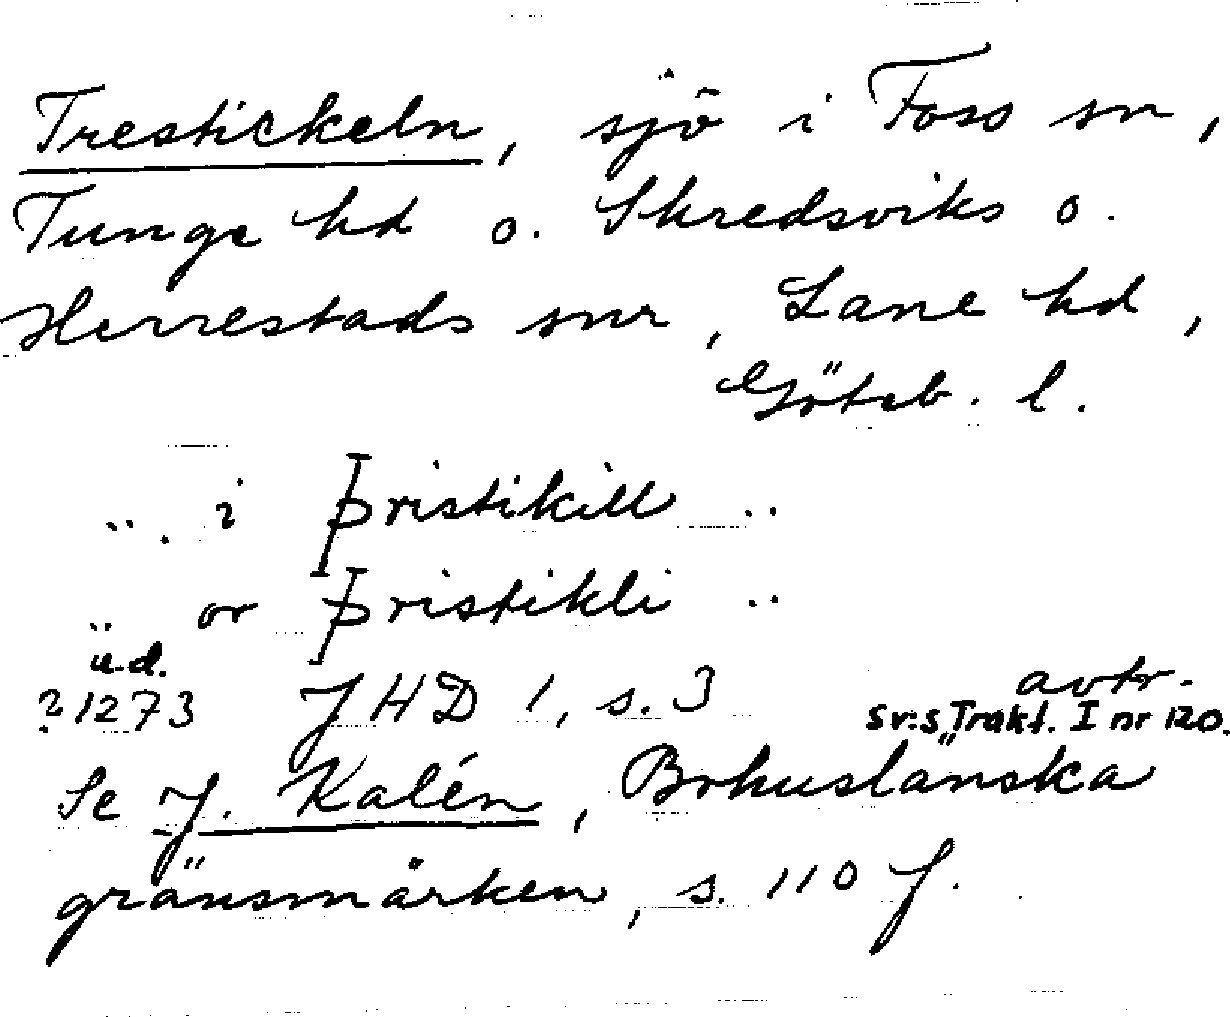 Trestickeln, sjö i Foss sn,
Tunge hd o. Skredsviks o.
Herrestads snr, Lane hd,
Göteb. l.
.. i Þristikill ..
.. or Þristikli ..
u.d.
?1273 JHD 1, s. 3 avtr.
Sv:s Trakt. I nr 120.
Se J. Kalén, Bohuslänska
gränsmärken, s. 110 f.